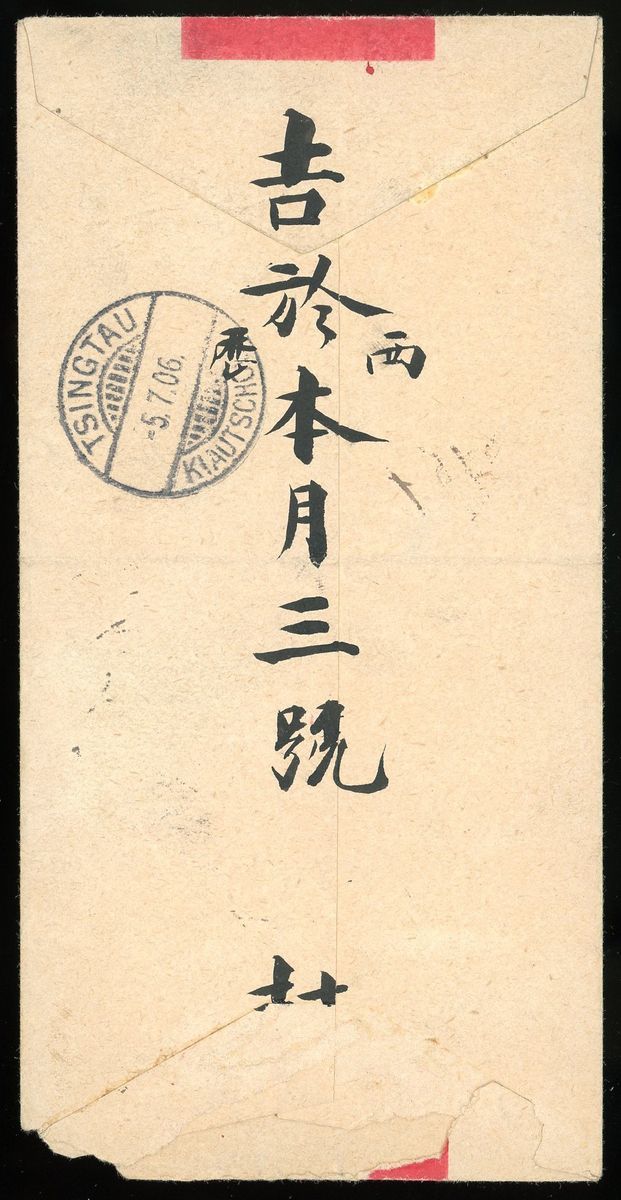 吉於本月三號
西
曆
TSINGTAU
-5.7.06.
KIAUTSCHOU